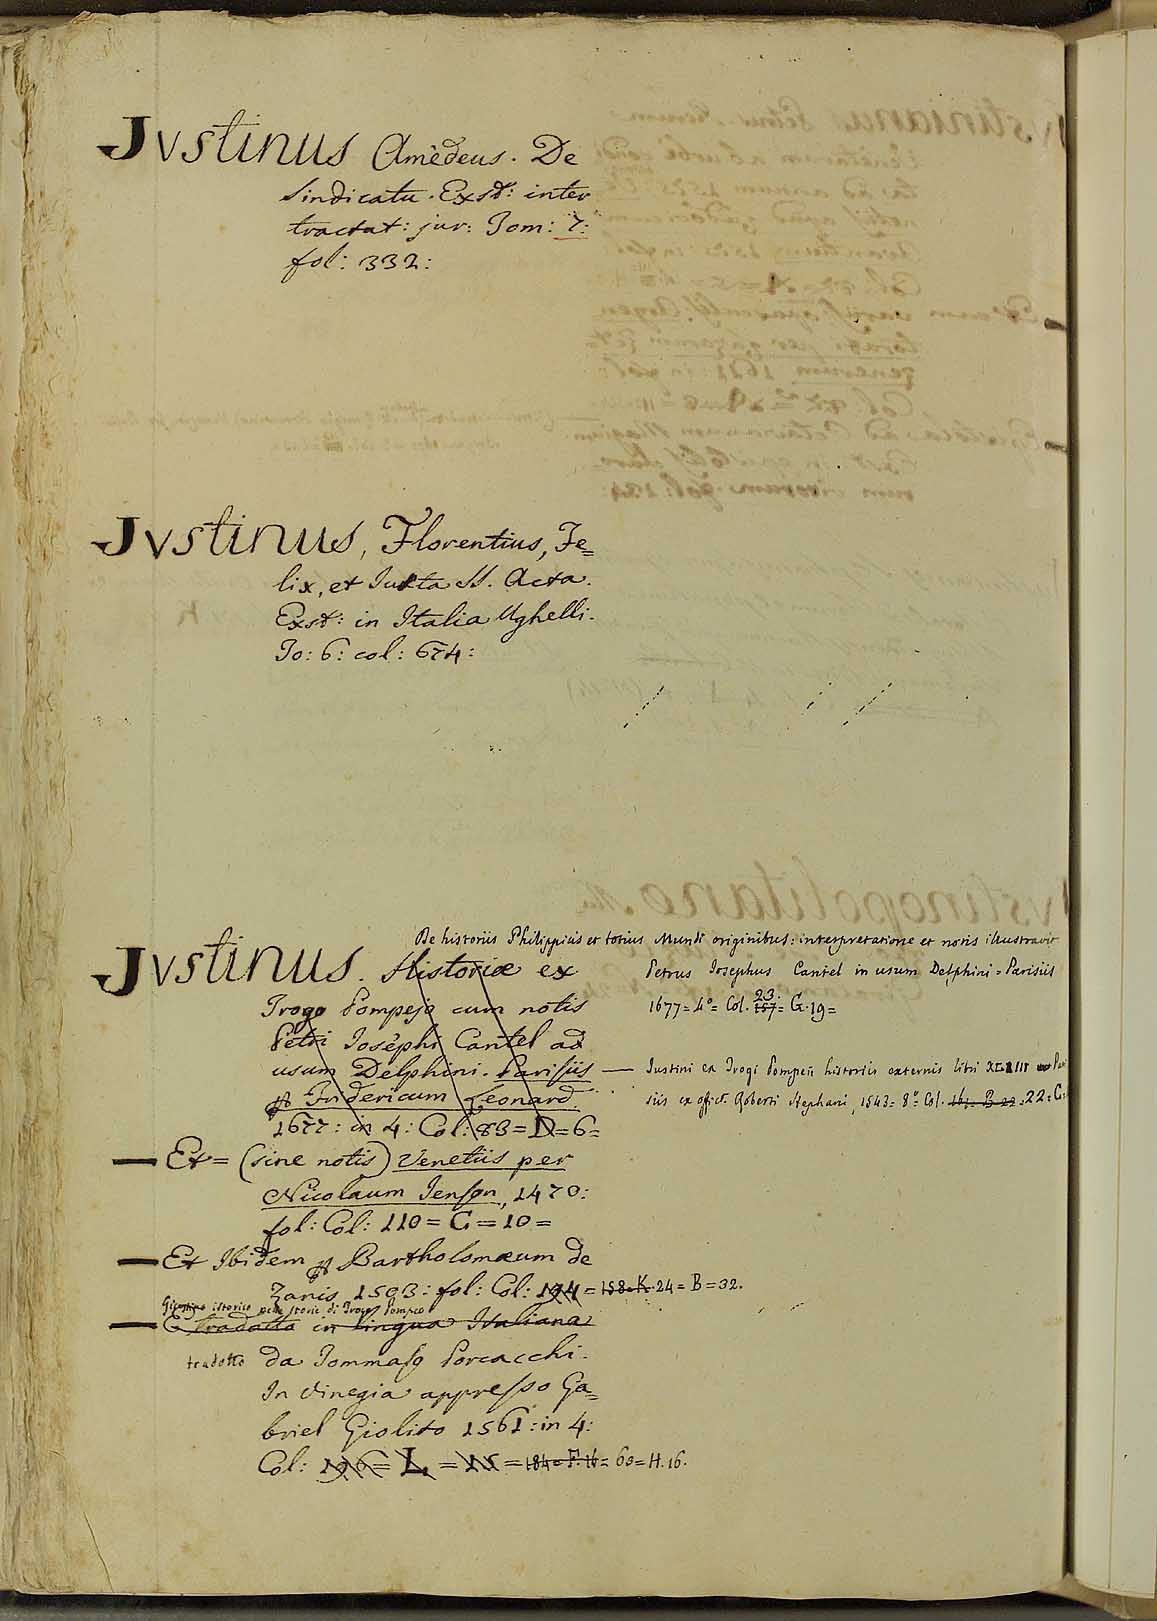 Jvstinus Amèdeus. De
Sindicatu. Exst: inter
tractat: jur: Tom: 7:
fol: 332:
Jvstinus, Florentius, Fe=
lix, et Justa SS. Acta.
Exst: in Italia Ughelli.
To: 6: col: 674:
De historiis Philippicis et totius Mundi originibus: interpretatione et notis illustravit
Petrus Josephus Cantel in usum Delphini = Parisiis
1677 = 4º = Col. 157 23 = G. 19 =
Jvstinus. Historiæ ex
Trogo Pompejo cum notis
Petri Josèphi Cantel ad
usum Delphini. Parisiis
Fridericum Leonard
1677: in 4: Col: 83 = D = 6 =
— Justini ex Trogi Pompeii historiis externis libri XLIIII Pari
siis ex offict. Roberti Stephani, 1543 = 8º = Col. 161. B 22 = 22 = G:
— Et = (sine notis) Venetiis per
Nicolaum Jenson, 1470:
fol: Col: 110 = G = 10 =
— Et Ibidem Bartholomæum de
Zanis 1503: fol: Col: 194 = 158 = K. 24 = B = 32.
Giustino istorico nelle storie di Trogo Pompeo
— E tradatta in lingua Italiana
tradotto da Tommaso Porcacchi.
In Vinegia appresso Ga=
briel Giolito 1561: in 4:
Col: 196 = L = 15 = 184 = F. 16 = 60 = H. 16.